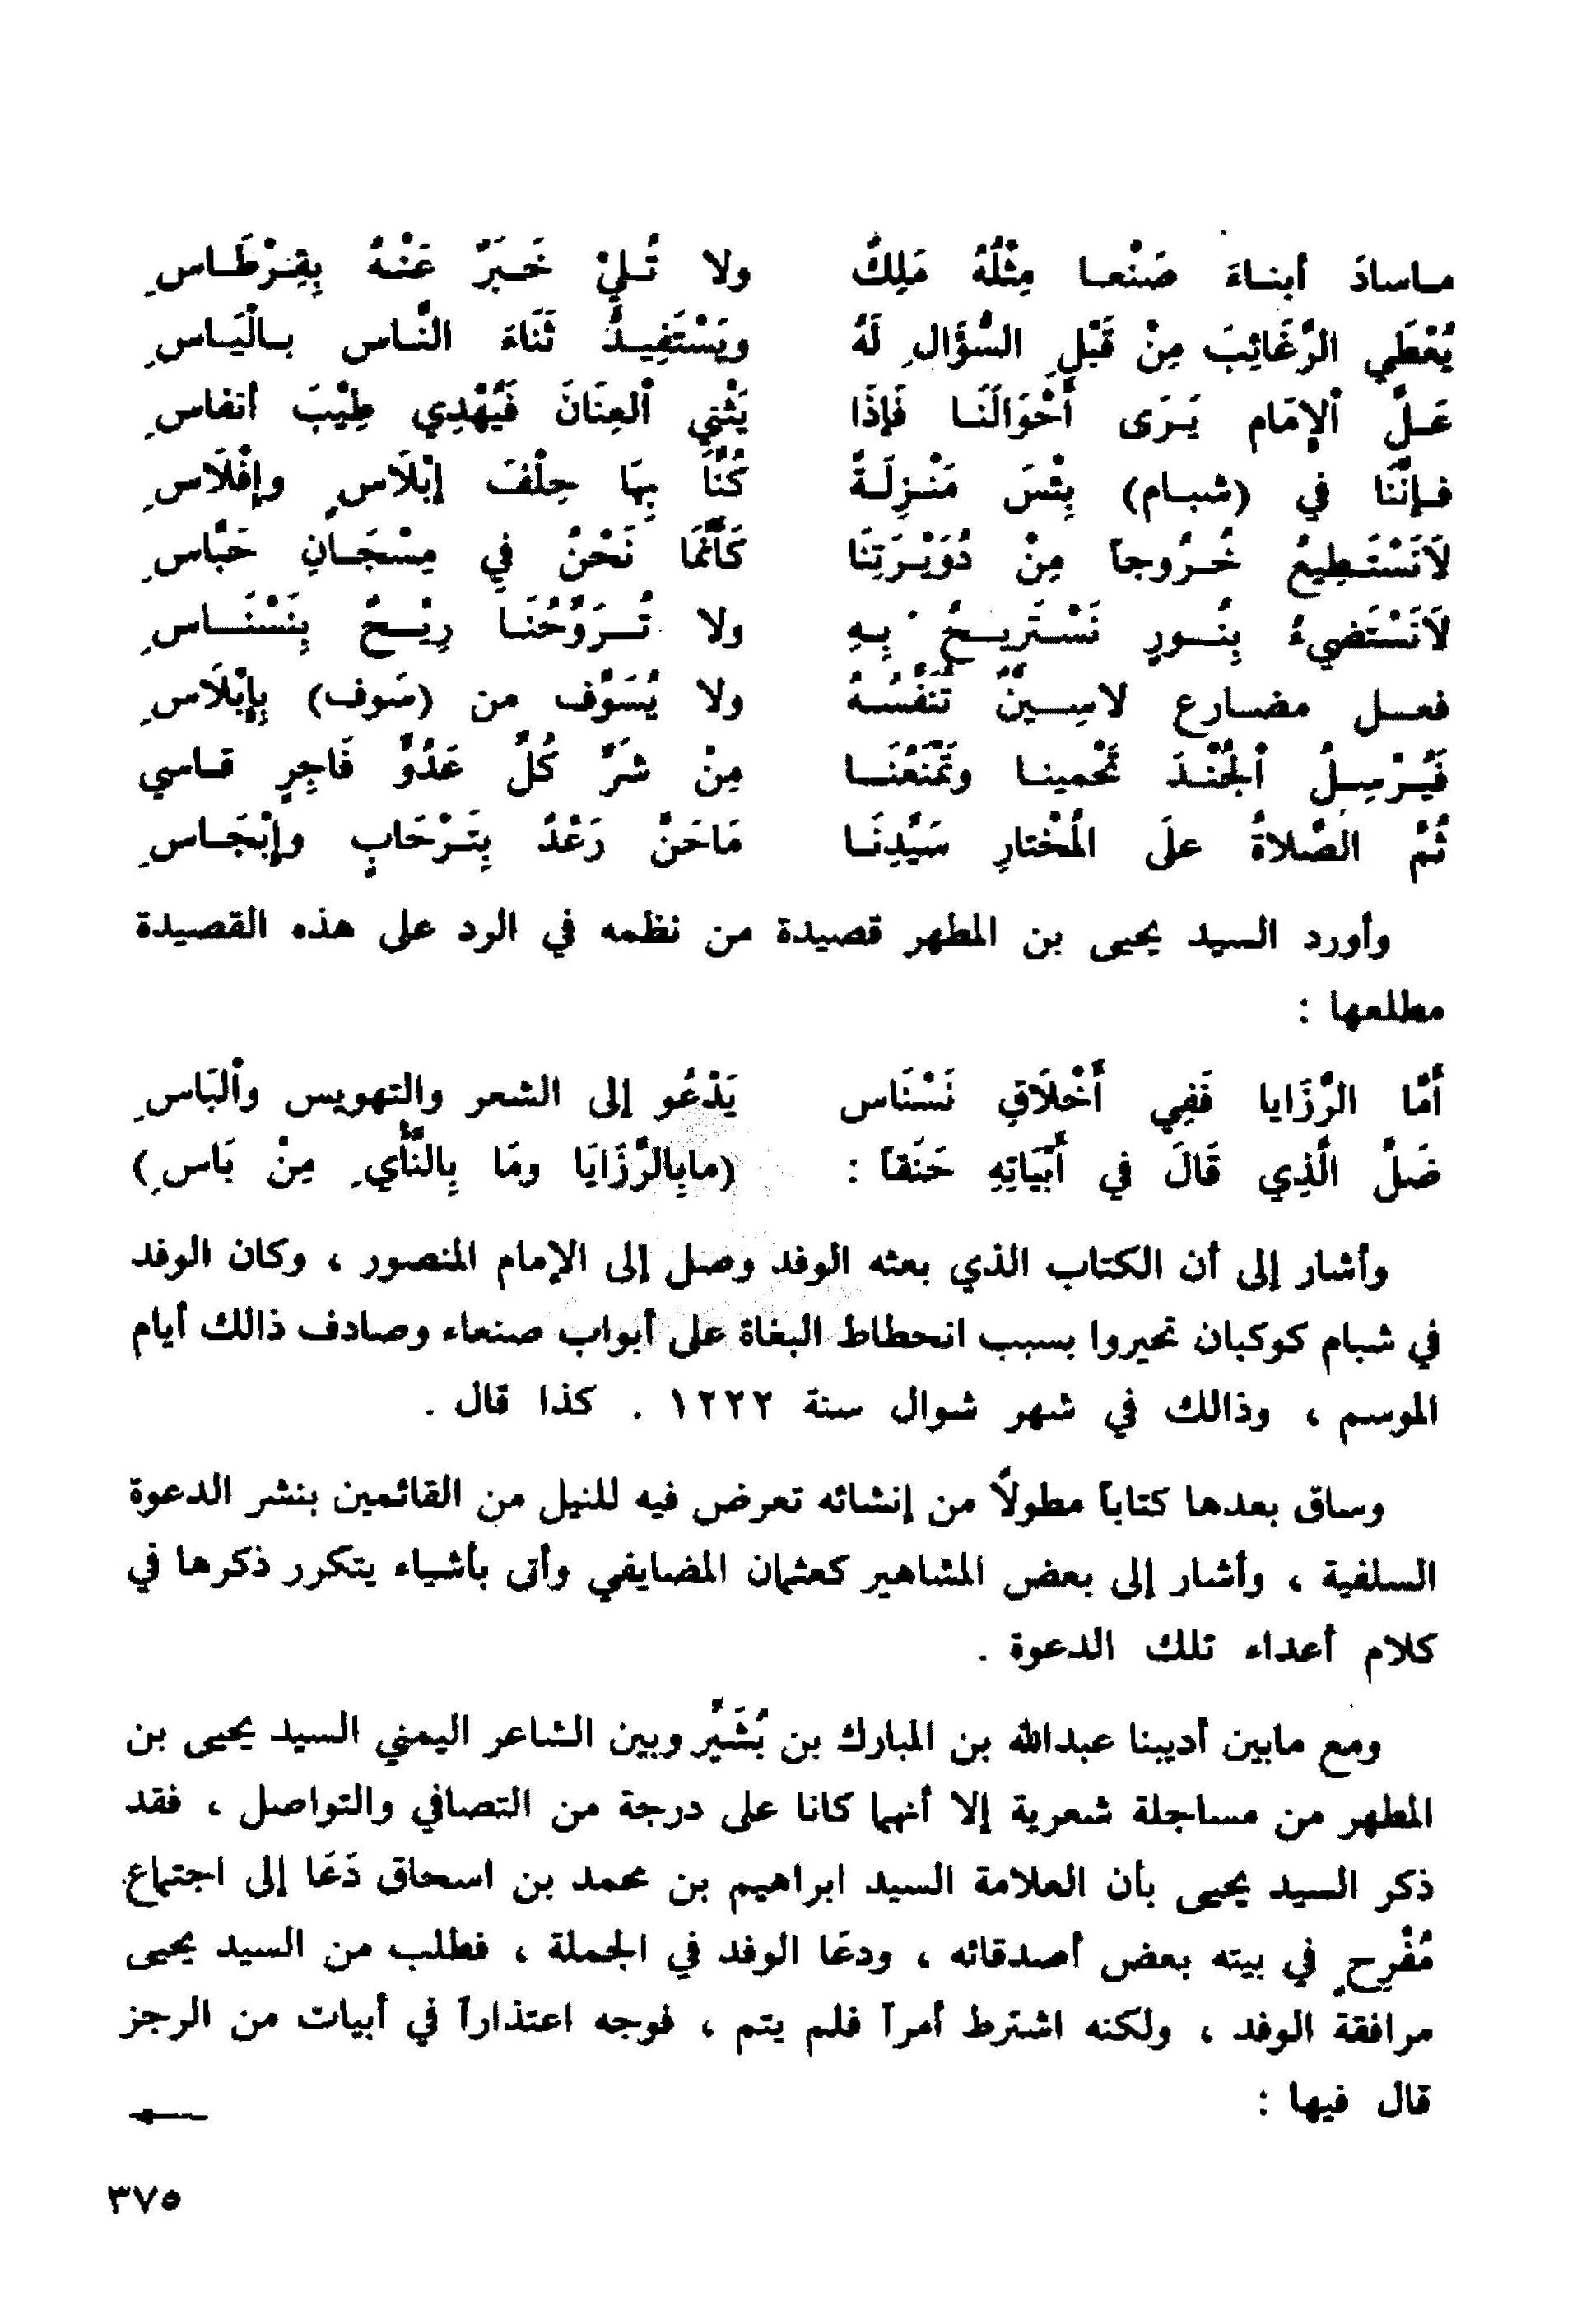 ماسادَ أبناءَ صَنْعا مِثْلُهُ مَلِكٌ ولا تُلِيْ خَبَرٌ عَنْهُ بِقِرْطَاسِ
يُعْطَي الرَّغَائِبَ مِنْ قَبْلِ السُّؤَالِ لَهُ ويَسْتَفِيدُ ثَنَاءَ النَّاس بالْيَاسِ
عَلَّ اْلإِمَام يَرَى أَحْوَالَنَا فَإِذَا يَثْنِي اْلعِنَانَ فَيُهْدِي طِيْبَ أنفاسِ
فإنَّنَا في (شبام) بِئْسَ مَنْزِلَةً كُنَّا بِهَا حِلْفَ إبْلَاسٍ وإفْلَاسِ
لَانَسْتَطِيعُ خُرُوجاً مِنْ دُوَيْرَتِنَا كَأَنَّمَا نَحْنُ فِي مِسْجَانِ حَبَّاسِ
لَانَسْتَضيءُ بِنُورٍ نَسْتَرِيحُ بِهِ ولا تُرَوَّحُنَا رِيْحٌ بِنَسْنَاسِ
فعل مضارع لاسِينٌ تُنَفِّسُهُ ولا يُسَوَّف من (سَوف) بِإبْلَاسِ
فَيُرْسِلُ اْلجُنْدَ تَحْمينا وتَمْنَعُنَا مِنْ شَرَّ كُلَّ عَدُوٍّ فَاجِرٍ قاسي
ثُمَّ الصَّلاةُ علَى المُخْتارِ سَيِّدِنَا مَاحَنَّ رَعْدٌ بِتَرْحَابٍ وإبْجَاسِ
وأورد السيد يحيى بن المطهر قصيدة من نظمه في الرد على هذه القصيدة
مطلعها :
أَمَّا الرَّزَايا فَفِي أَخْلَاقِ نَسْنَاس يَدْعُو إلى الشعر والتهويس واْلبَاسِ
ضَلَّ الَّذِي قَالَ في أَبْيَاتِهِ حَنَقاً : (مابِالرَّزَايَا ومَا بِالنَّأيِ مِنْ بَاسِ)
وأشار إلى أن الكتاب الذي بعثه الوفد وصل إلى الإمام المنصور ، وكان الوفد
في شبام كوكبان تحيروا بسبب انحطاط البغاة على أبواب صنعاء وصادف ذالك أيام
الموسم ، وذالك في شهر شوال سنة ١٢٢٢ . كذا قال .
وساق بعدها كتاباً مطولاً من إنشائه تعرض فيه للنيل من القائمين بنشر الدعوة
السلفية ، وأشار إلى بعض المشاهير كعثمان المضايفي وأتى بأشياء يتكرر ذكرها في
كلام أعداء تلك الدعوة .
ومع مابين أديبنا عبدالله بن المبارك بن بُشَيِّر وبين الشاعر اليمني السيد يحيى بن
المطهر من مساجلة شعرية إلا أنهما كانا على درجة من التصافي والتواصل ، فقد
ذكر السيد يحيى بأن العلامة السيد ابراهيم بن محمد بن اسحاق دَعَا إلى اجتماع
مُفْرِحٍ في بيته بعض أصدقائه ، ودعَا الوفد في الجملة ، فطلب من السيد يحيى
مرافقة الوفد ، ولكنه اشترط أمراً فلم يتم ، فوجه اعتذاراً في أبيات من الرجز
قال فيها :
٣٧٥